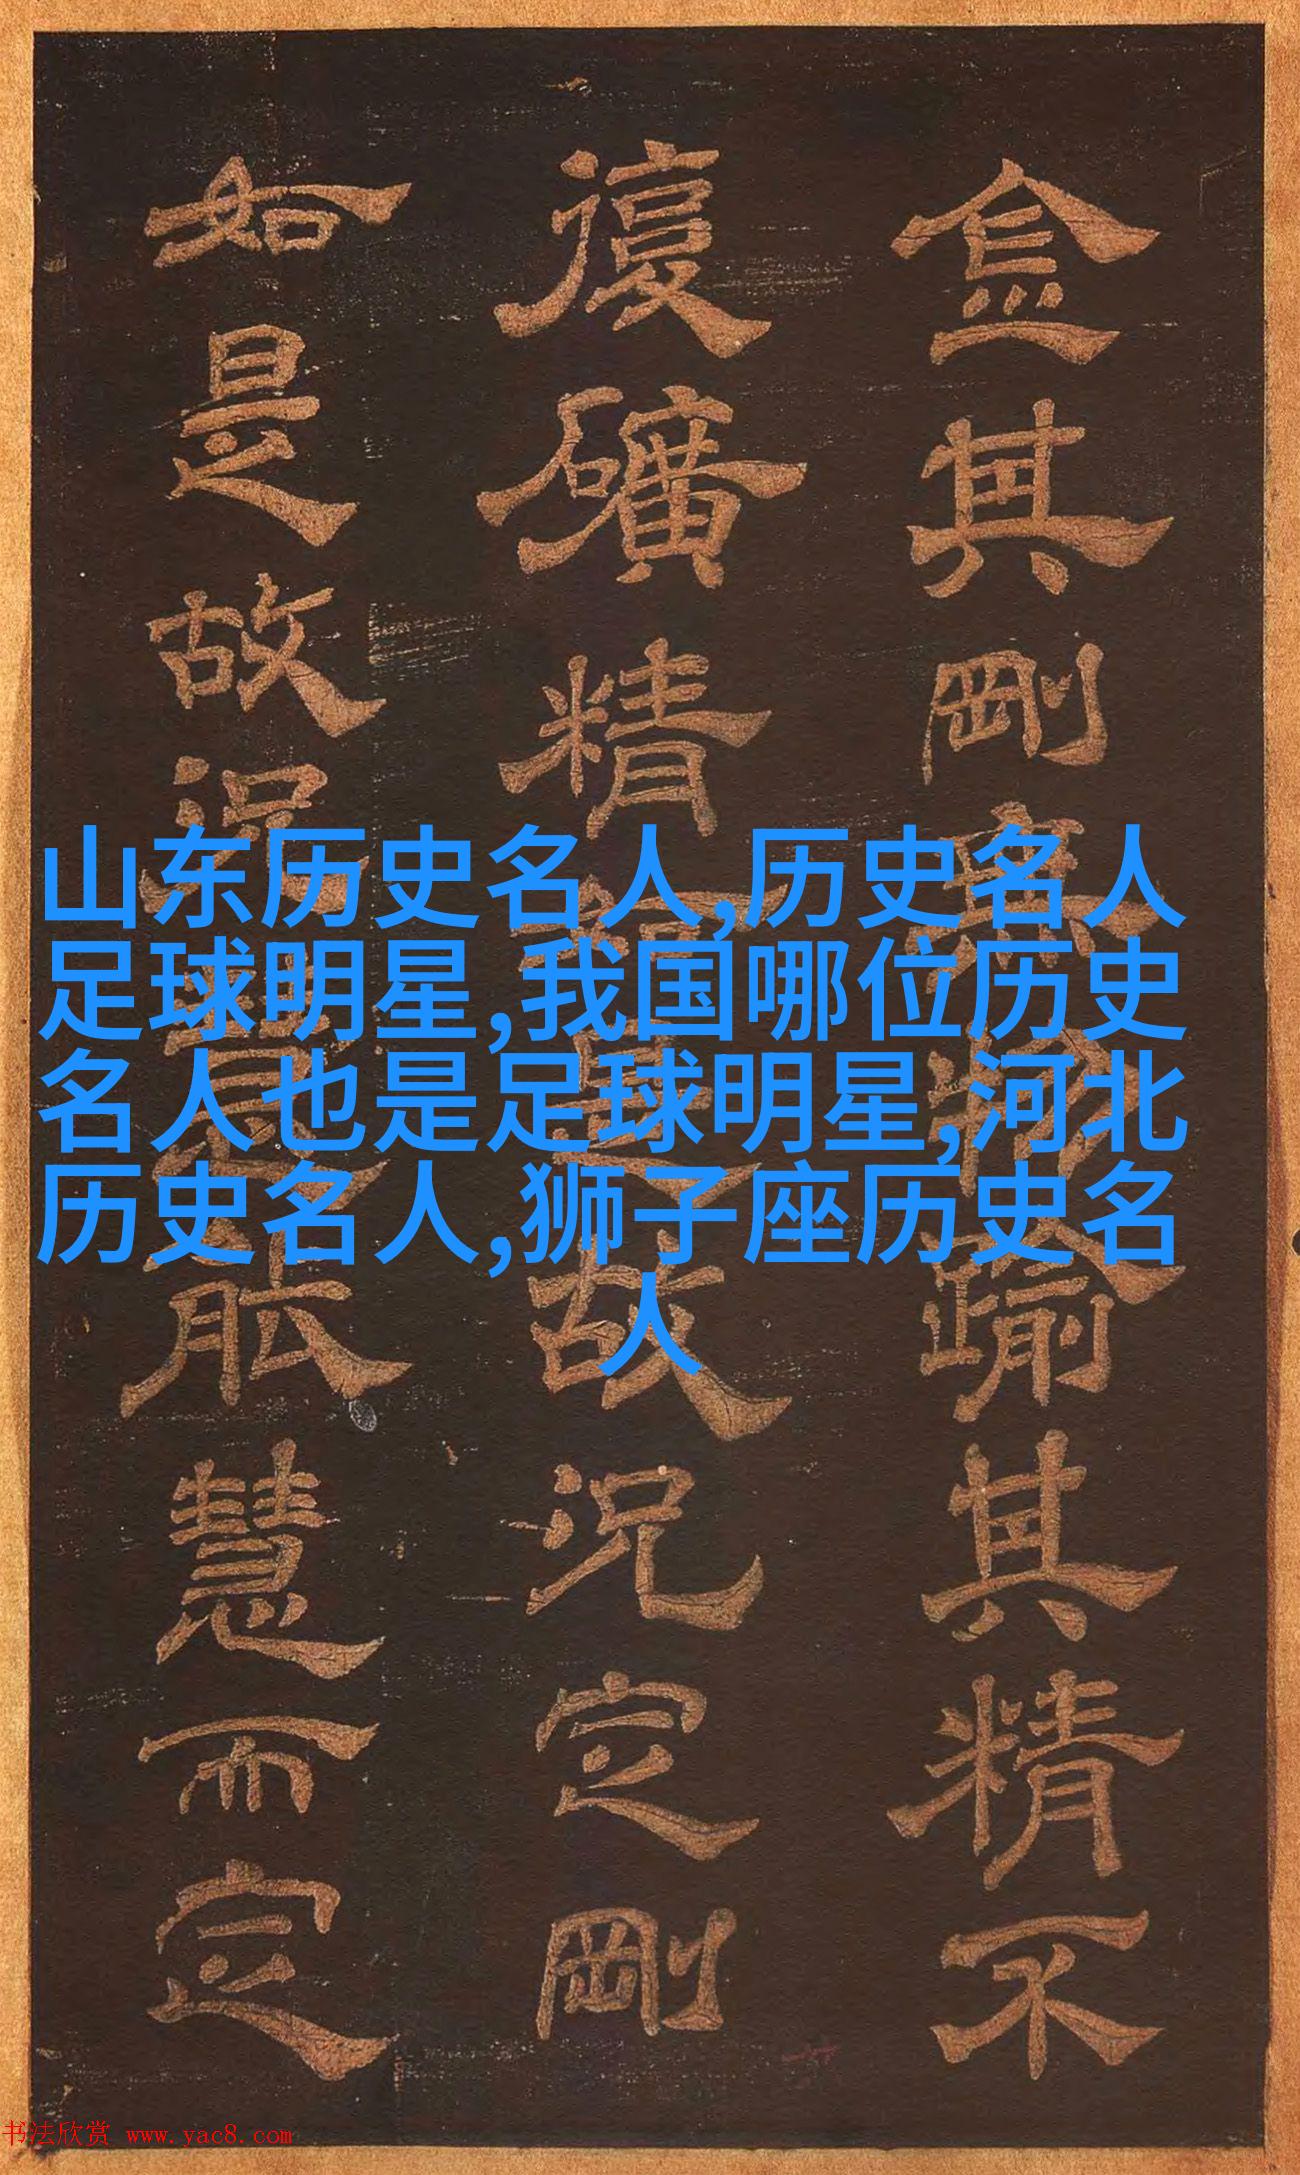 金其剛與精踰其精不
復礦精銷其故況定剛
如是故況習能慧而定
山东历史名人,历史名人
足球明星,我国哪位历史
名人也是足球明星,河北
历史名人,狮子座历史名
人
书法欣赏 www.yac8.com